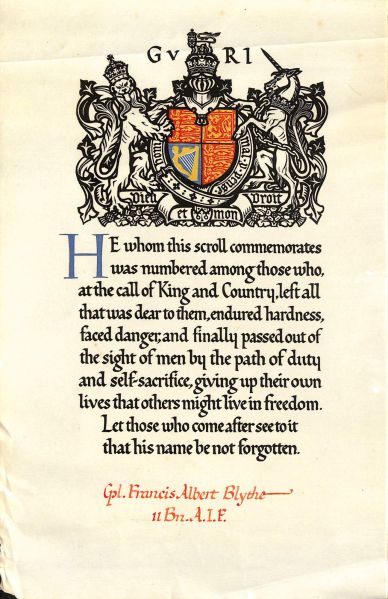 GV RI
Honi soit qui mal y pense
Dieu et mon Droit
HE whom this scroll commemorates
was numbered among those who,
at the call of King and Country, left all
that was dear to them, endured hardness,
faced danger, and finally passed out of
the sight of men by the path of duty
and self-sacrifice, giving up their own
lives that others might live in freedom.
Let those who come after see to it
that his name be not forgotten.
Cpl. Francis Albert Blythe
11 Bn. A.I.F.